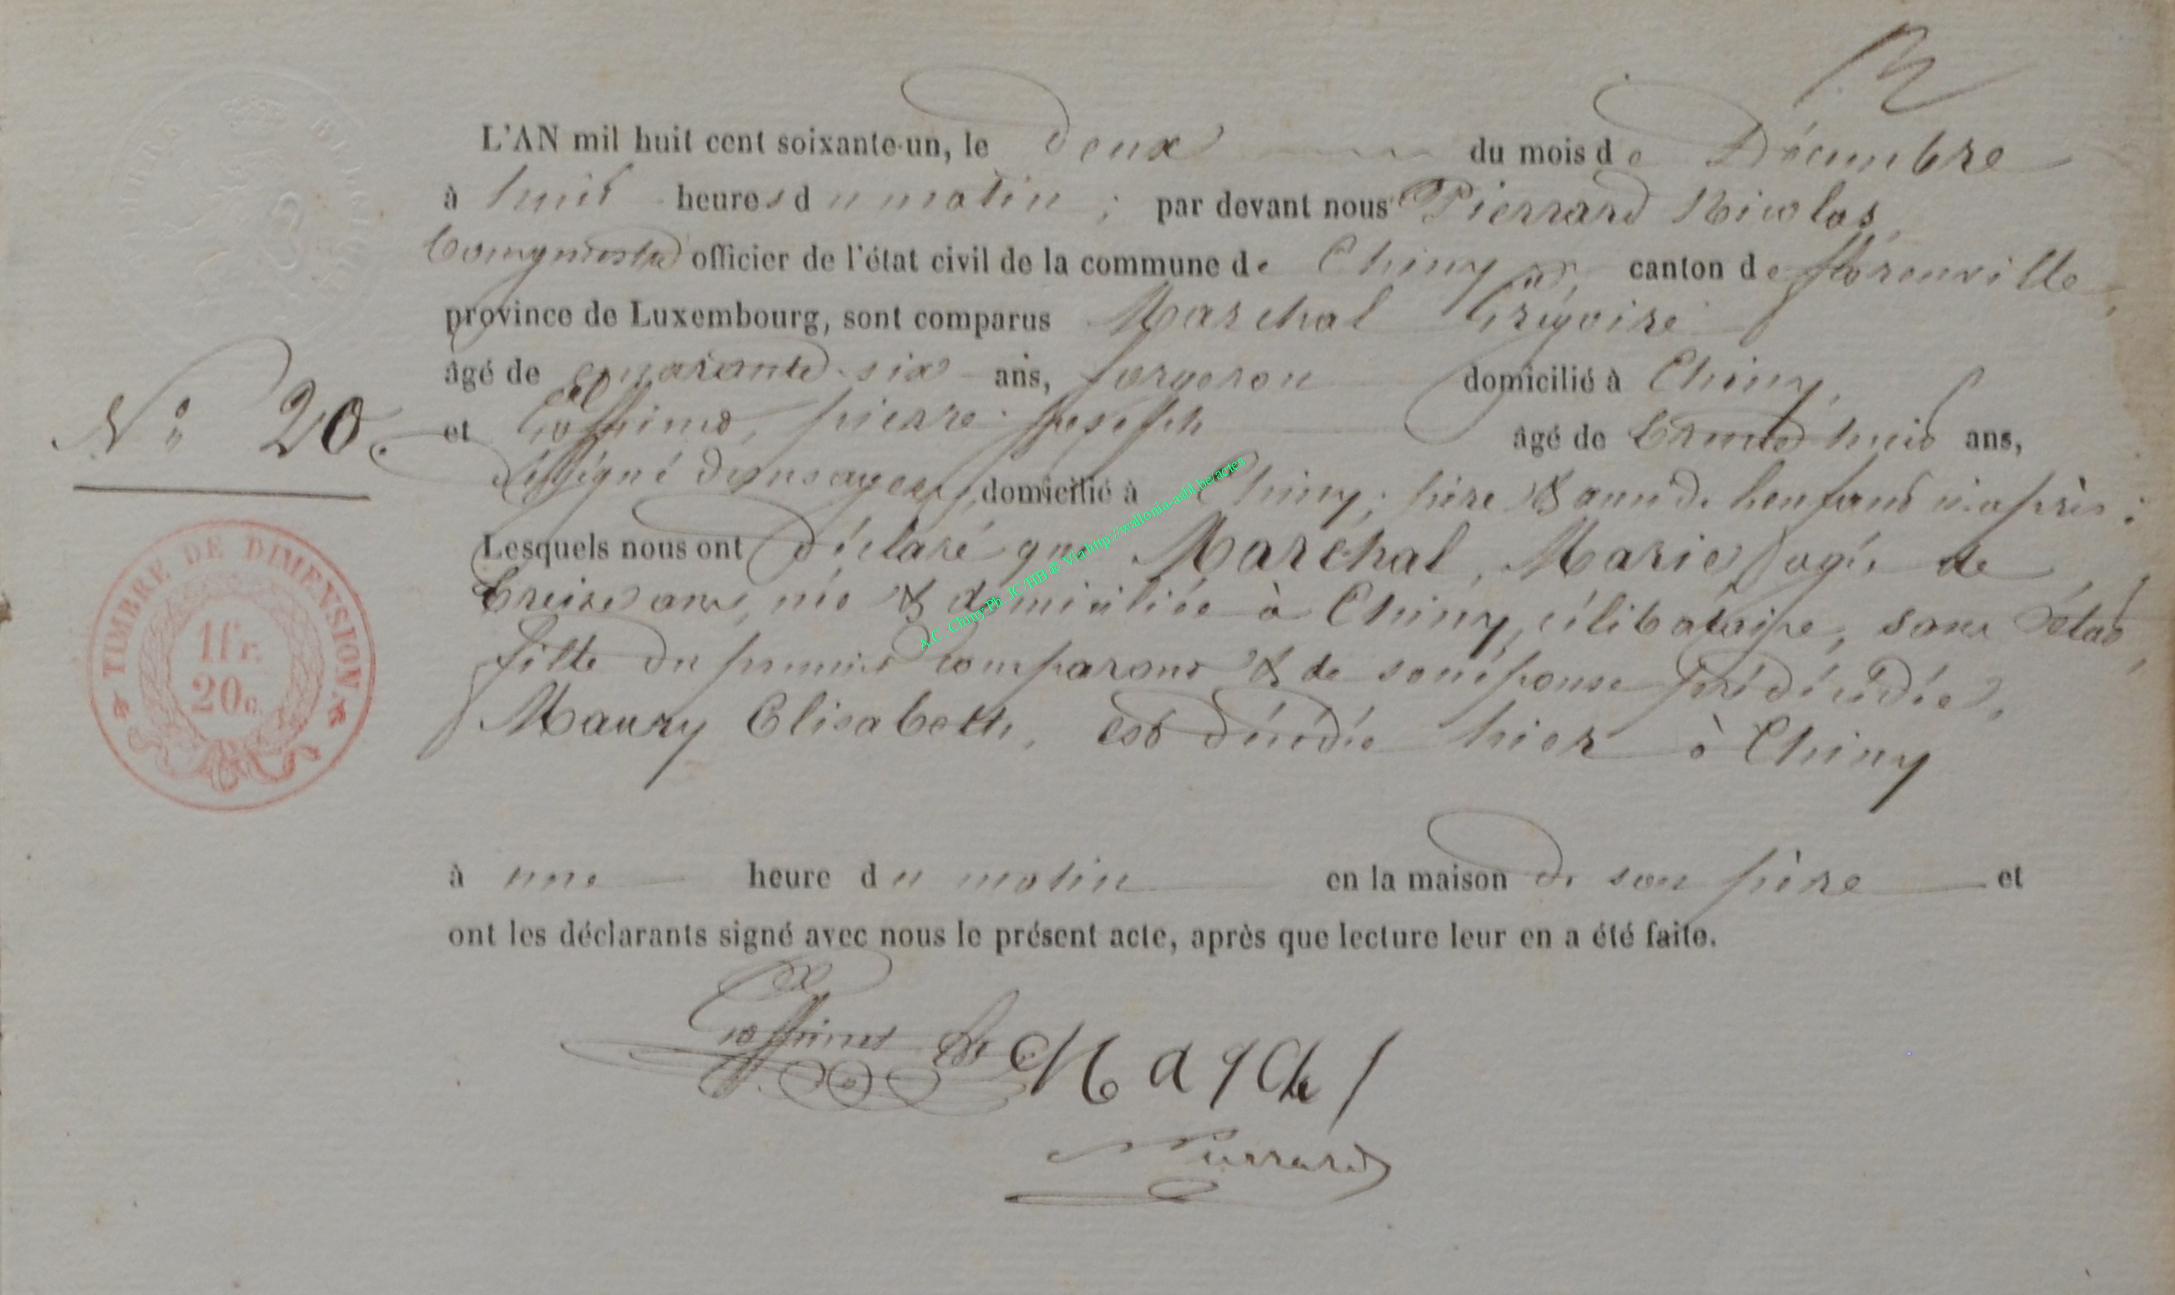 L'AN mil huit cent soixante-un, le deux du mois de Décembre
à huit heures du matin ; par devant nous Pierrard Nicolas,
Bourgmestre officier de l'état civil de la commune de Chiny, canton de florenville,
province de Luxembourg, sont comparus Marchal Grégoire
âgé de quarante-six ans, forgeron domicilié à Chiny,
N° 20.
et Goffinet, pierre joseph âgé de trente huit ans,
domicilié à Chiny, père & ami de l'enfant ci-après ;
Lesquels nous ont déclaré que Marchal, Marie, âgée de
treize ans, née & domiciliée à Chiny, célibataire, sans état,
fille du premier comparant & de son épouse prédécédée,
Maury Elisabeth, est décédée hier à Chiny
TIMBRE DE DIMENSION
1 fr.
20 c.
à une heure du matin en la maison de son père et
ont les déclarants signé avec nous le présent acte, après que lecture leur en a été faite.
Goffinet
Marchal
Pierrard
A.C. Chiny Ph. JC HB © Via http://wallonia-asbl.be/actes